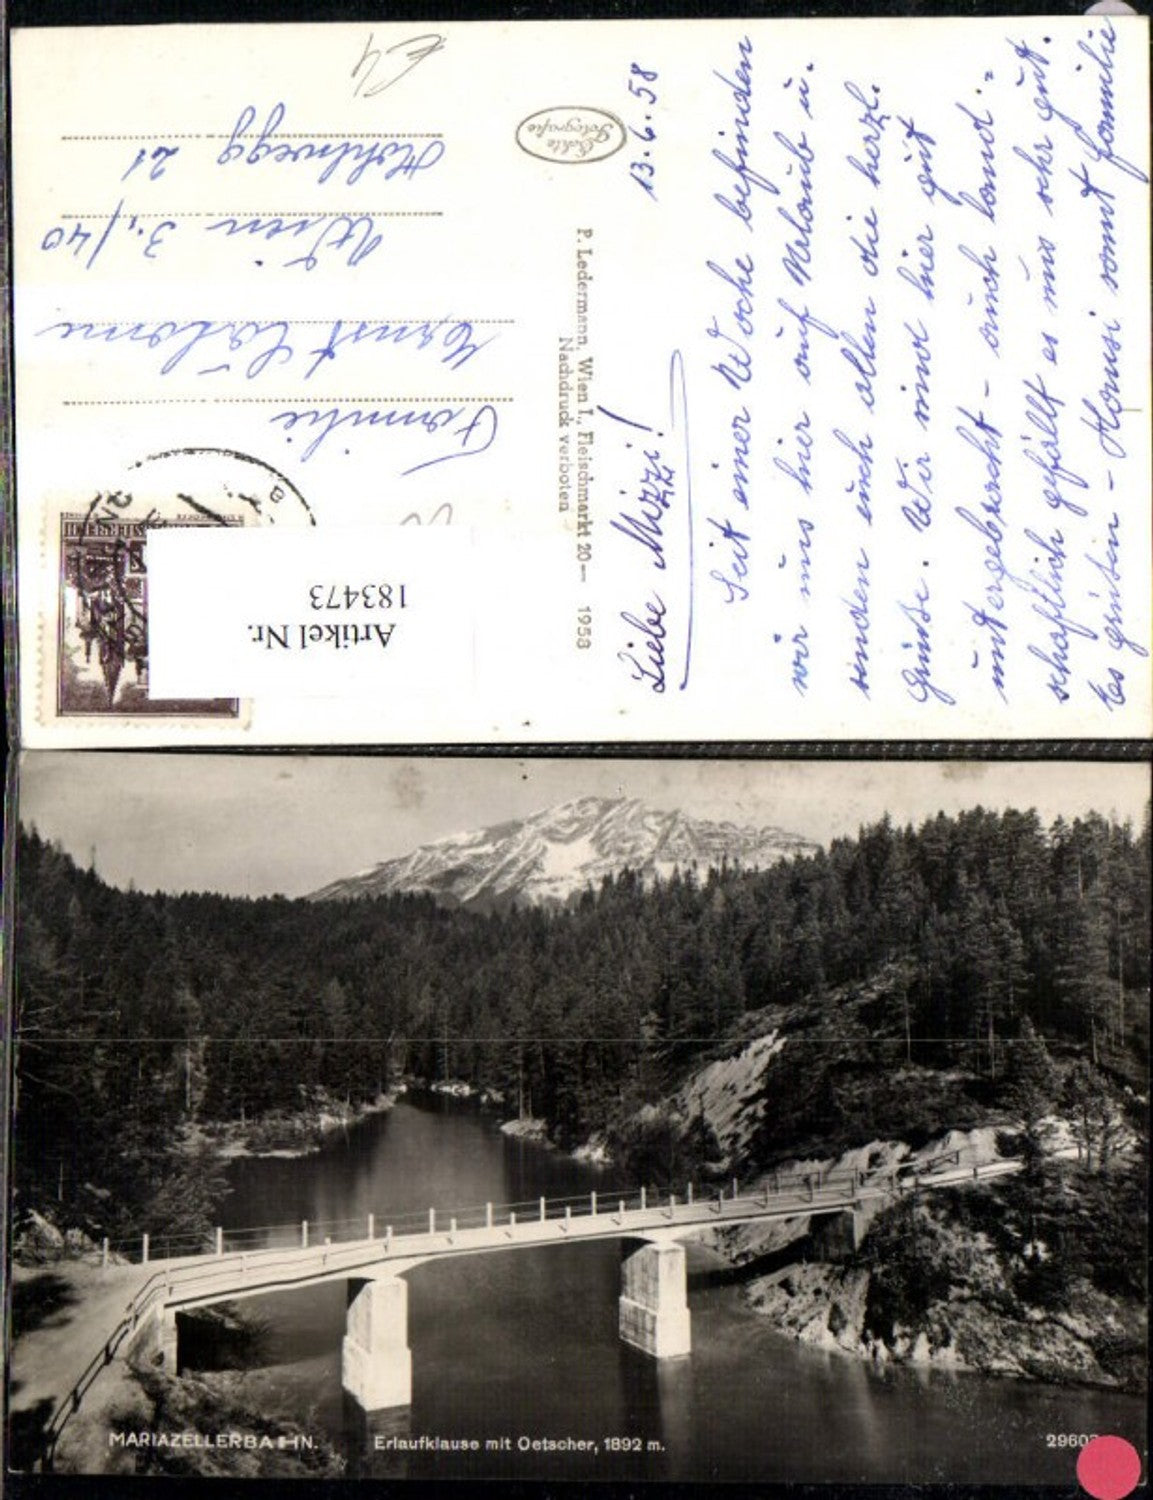 13.6.58
Liebe Mizzi!
Seit einer Woche befinden
wir uns hier auf Urlaub u.
senden euch allen die herzl.
Grüsse. Wir sind hier gut
untergebracht - auch land-
schaftlich gefällt es uns sehr gut.
Es grüssen - Hansi samt Familie
P. Ledermann, Wien I., Fleischmarkt 20 — 1958
Nachdruck verboten
Echte
Fotografie
Familie
Ernst
Wien 3./40
Hohlwegg 21
Artikel Nr.
183473
MARIAZELLERBAHN.
Erlaufklause mit Oetscher, 1892 m.